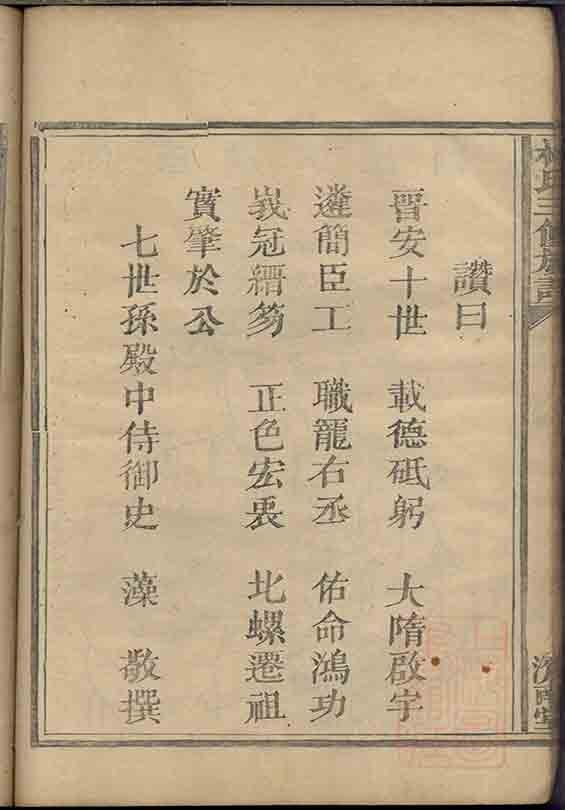 讚曰
晋安十世　載德砥躬　大隋啟宇
遴簡臣工　職寵右丞　佑命鴻功
峩冠縉笏　正色宏衷　北螺遷祖
實肇於公
七世孫殿中侍御史　藻　敬撰
林氏三修族譜
濟南堂